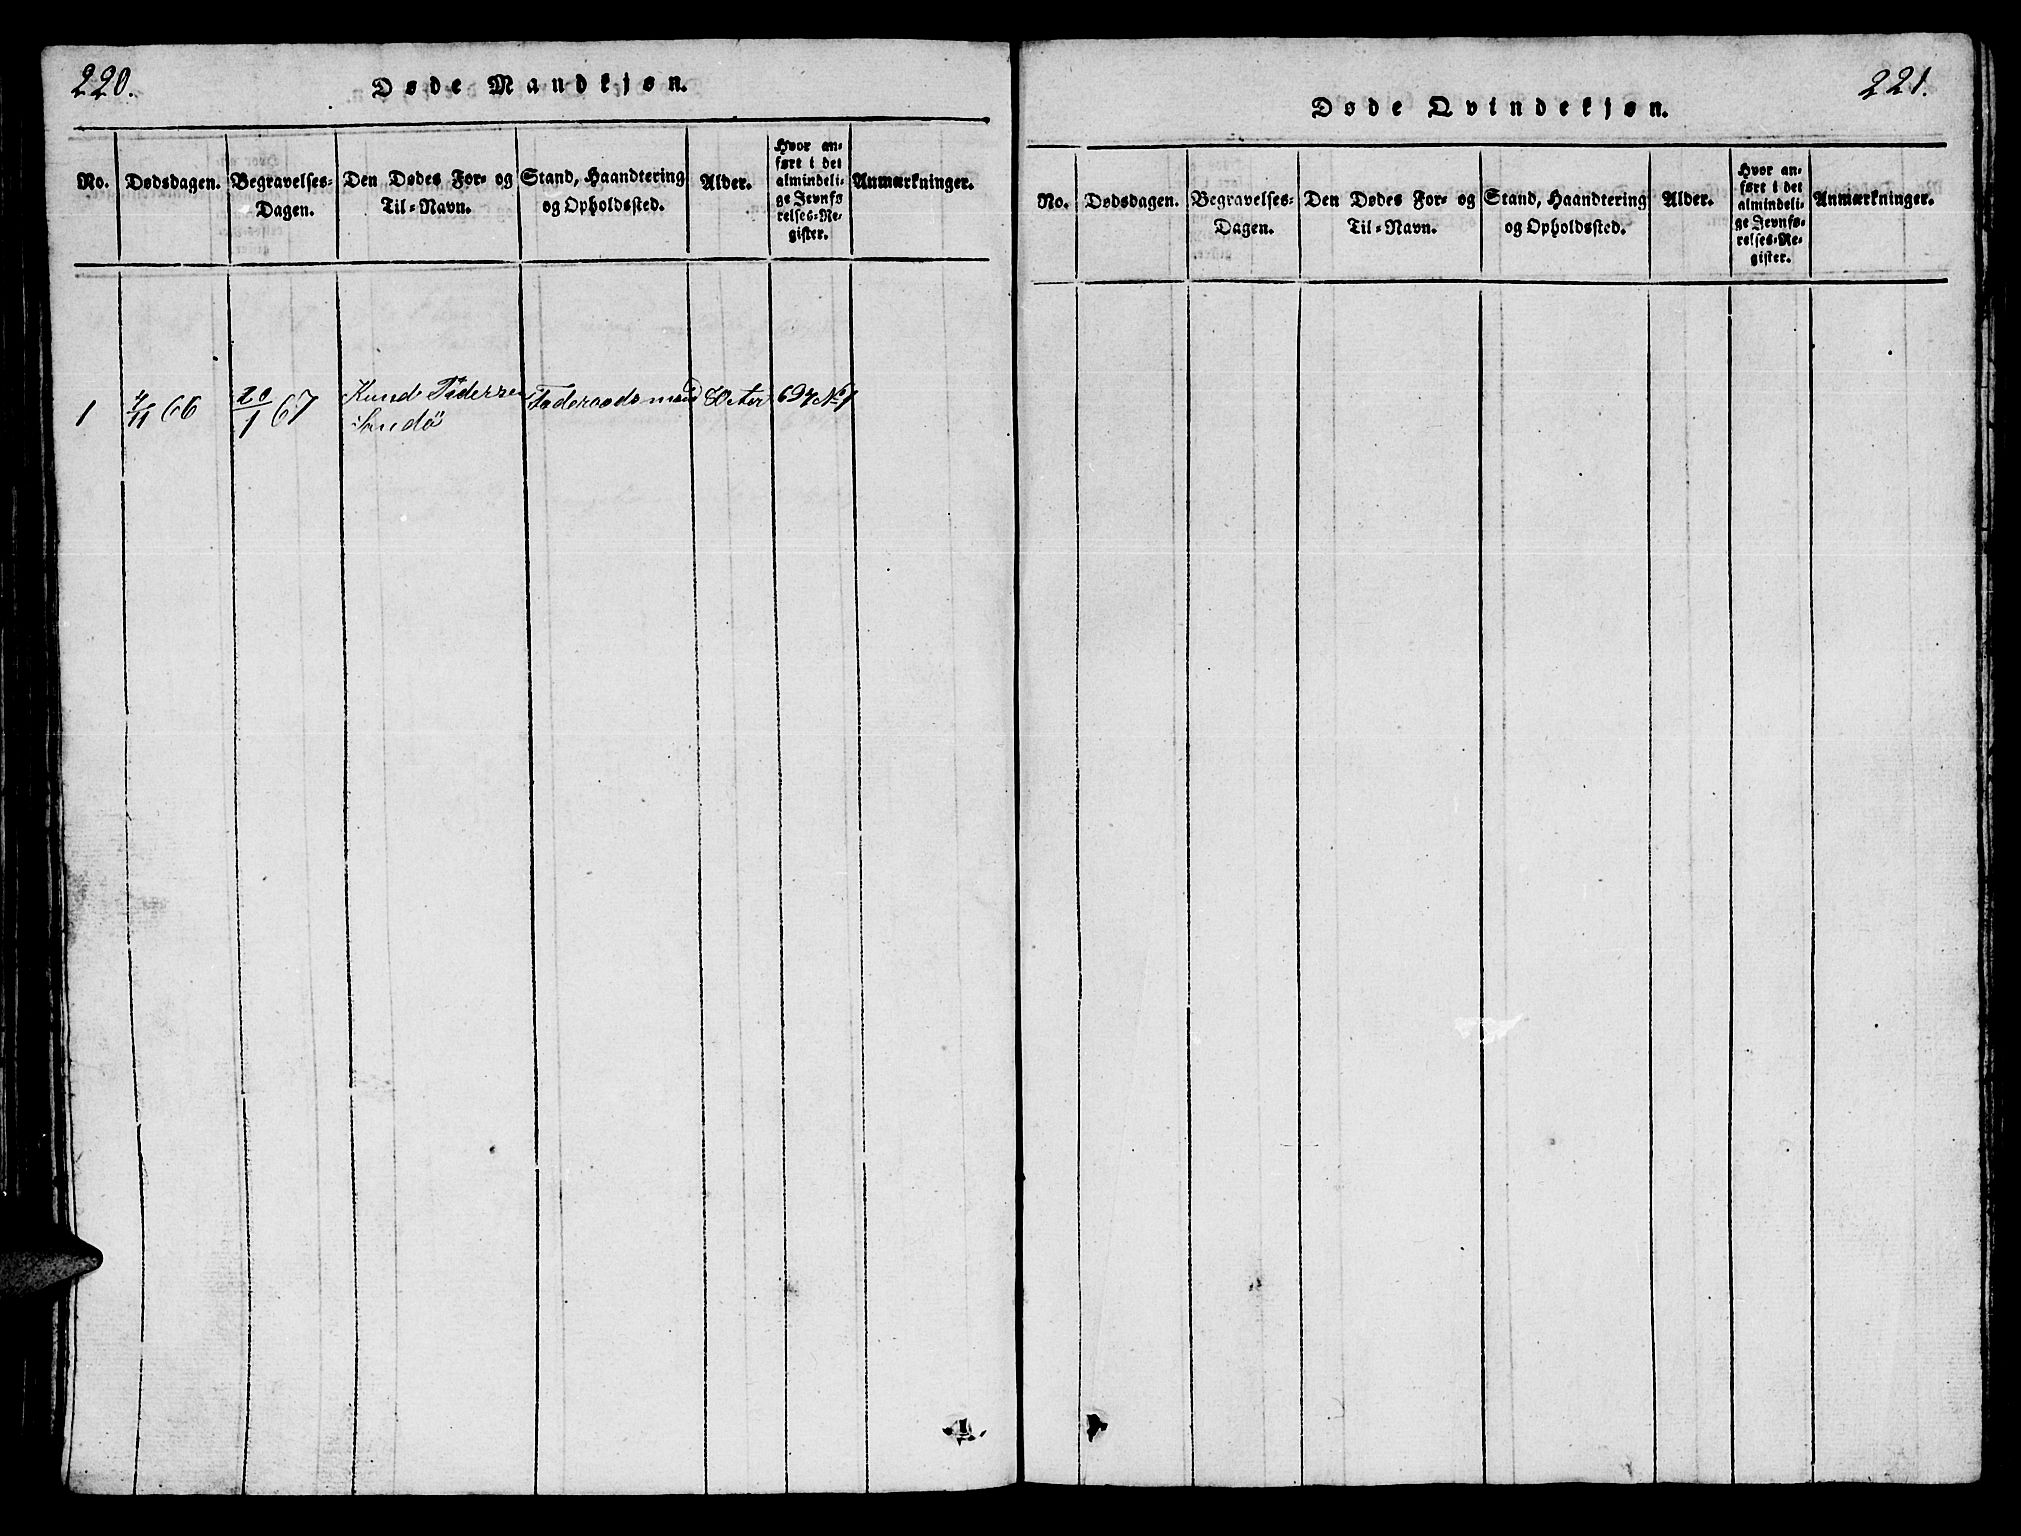 220.
Døde Mandkjøn.
No.
Dødsdagen.
Begravelses-
Dagen.
Den Dødes For- og
Til-Navn.
Stand, Haandtering
og Opholdssted.
Alder.
Hvor an-
ført i det
almindeli-
ge Jevnfø
relses-Re-
gister.
Anmærkninger.
1
66
20/1 67
Knud Pedersen
Sandö
Foderaadsmand
697 № 1
221.
Døde Qvindekjøn.
No.
Dødsdagen.
Begravelses-
Dagen.
Den Dødes For- og
Til-Navn.
Stand, Haandtering
og Opholdssted.
Alder.
Hvor an-
ført i det
almindeli-
ge Jevnfø-
relses-Re-
gister.
Anmærkninger.